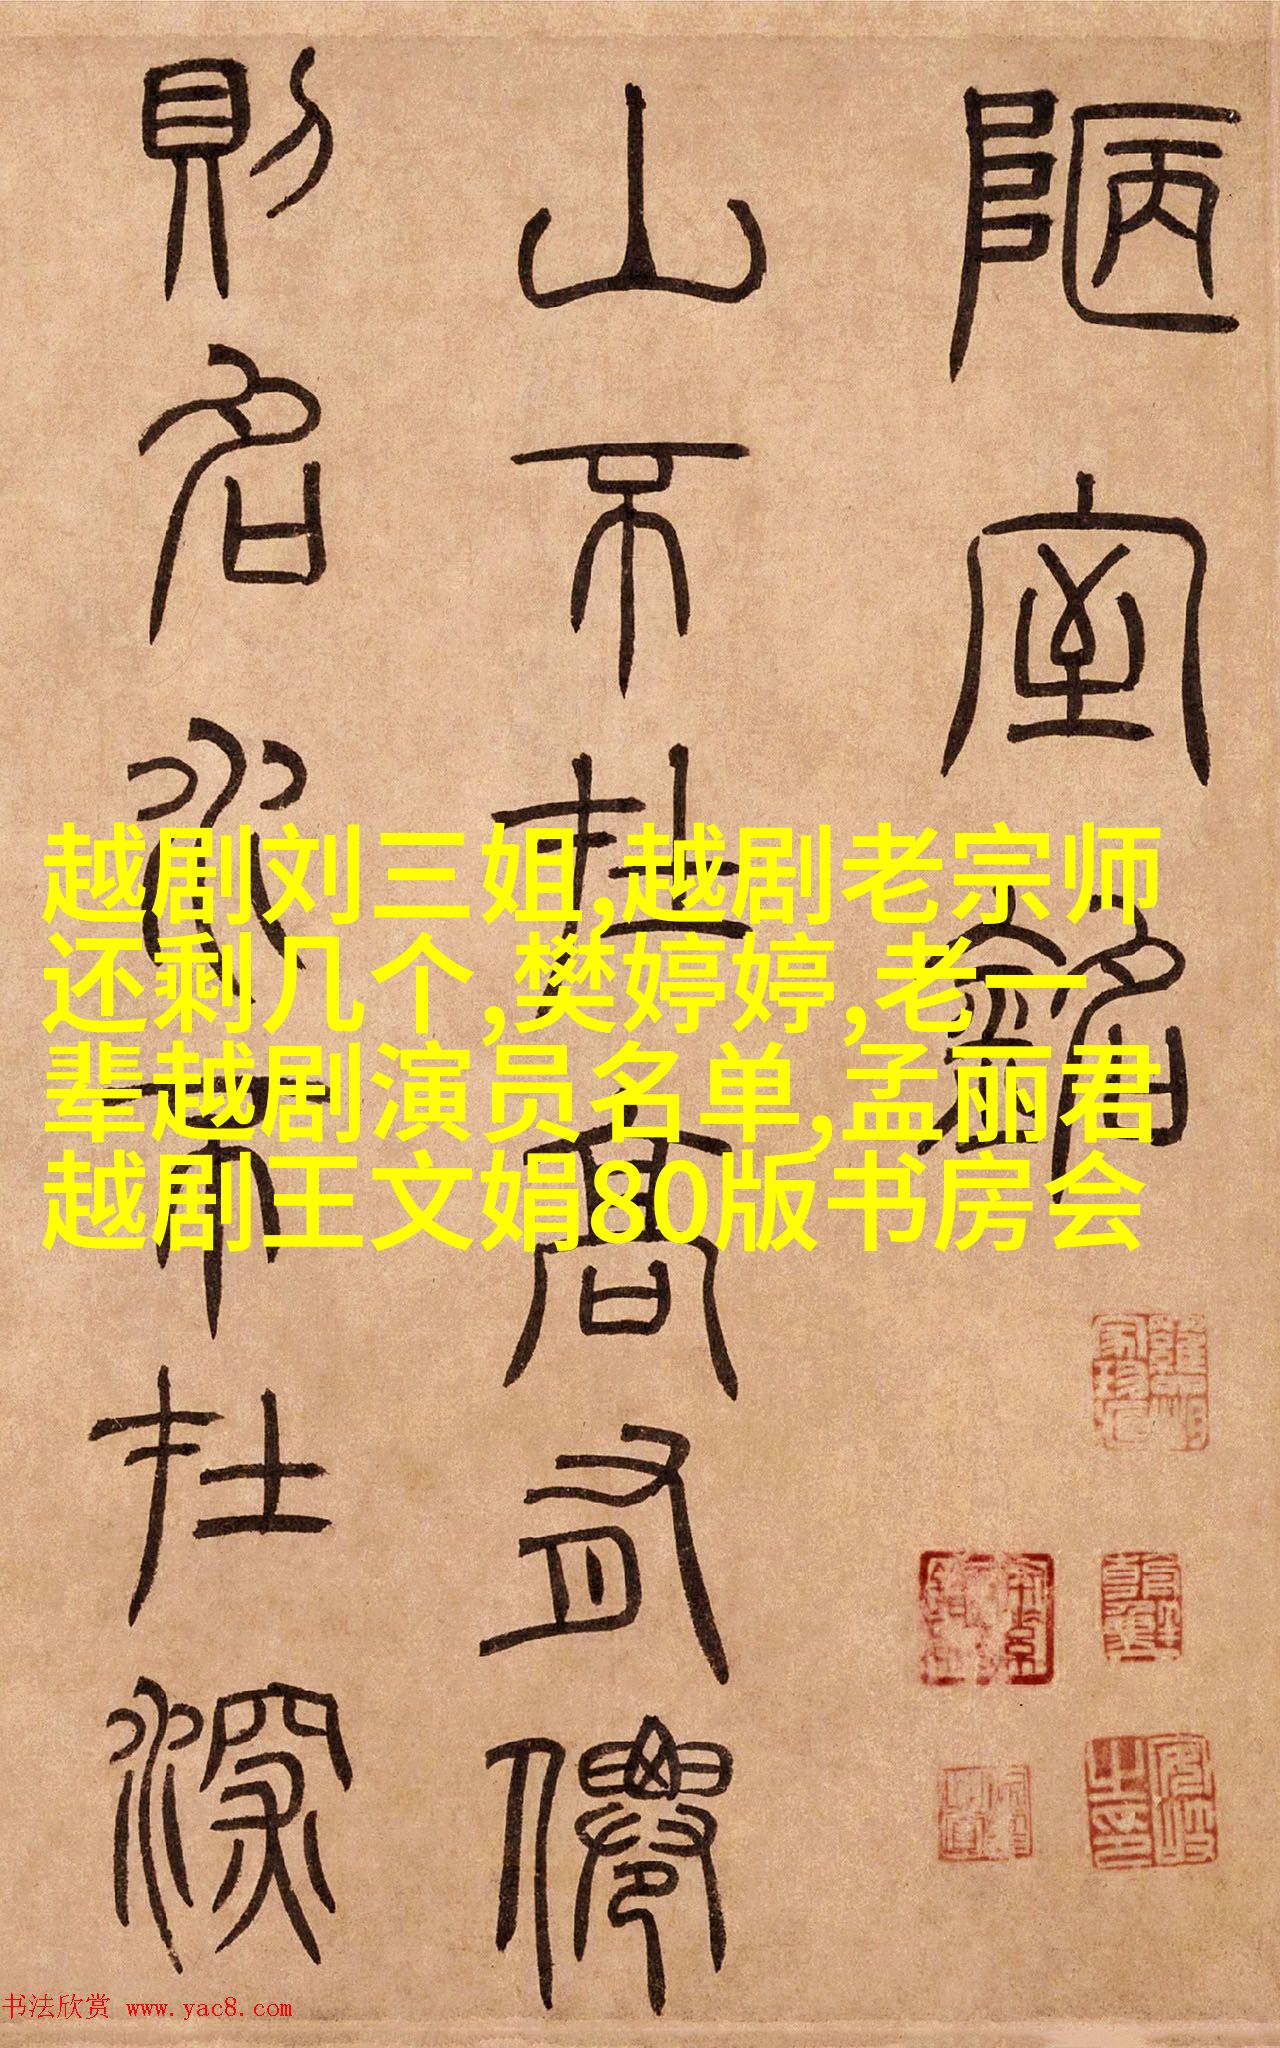 陋室銘
山不在高有僊
則名水不在深
越剧刘三姐,越剧老宗师
还剩几个,樊婷婷,老一
辈越剧演员名单,孟丽君
越剧王文娟80版书房会
书法欣赏 www.yac8.com